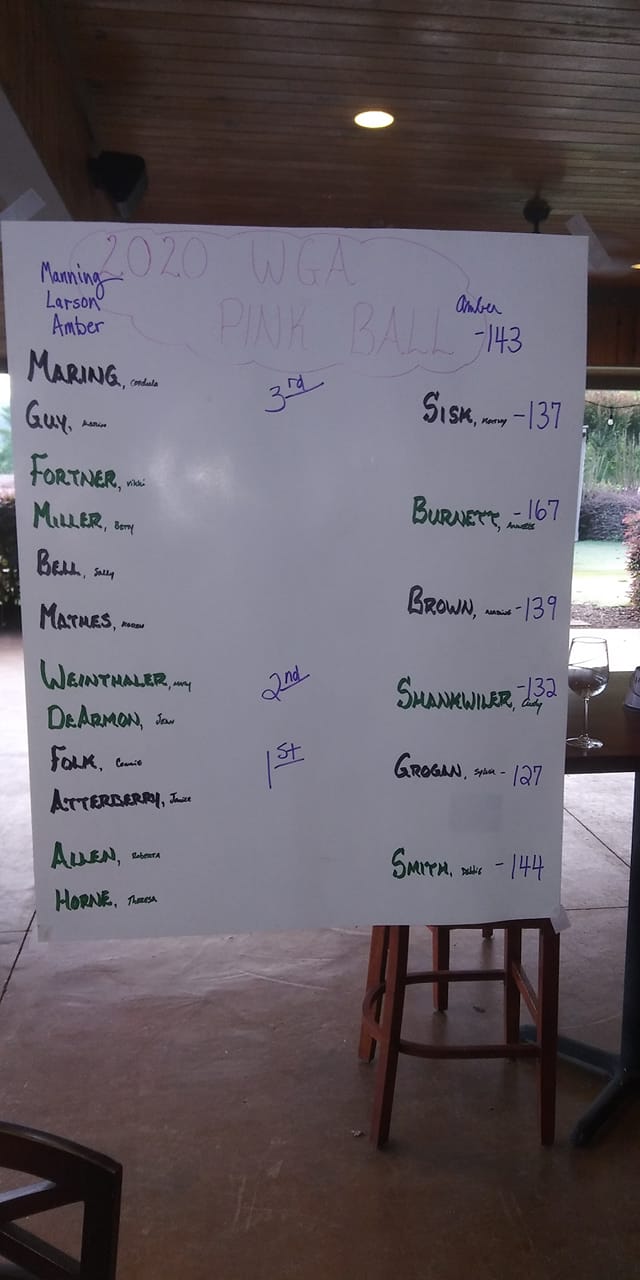 2020 WGA
PINK BALL
Manning
Larson
Amber
Amber
-143
MARING, Cordula
3rd
GUY,
SISK, -137
FORTNER, Vikki
MILLER, Betty
BURNETT, -167
BELL, Sally
MATHES, Karen
BROWN, -139
WEINTHALER,
2nd
DEARMON, Jean
SHANKWILER, Cindy -132
FOLK, Connie
1st
ATTERBERRY, Janice
GROGAN, Sylvia -127
ALLEN, ROBERTA
HORNE, THERESA
SMITH, Debbie -144